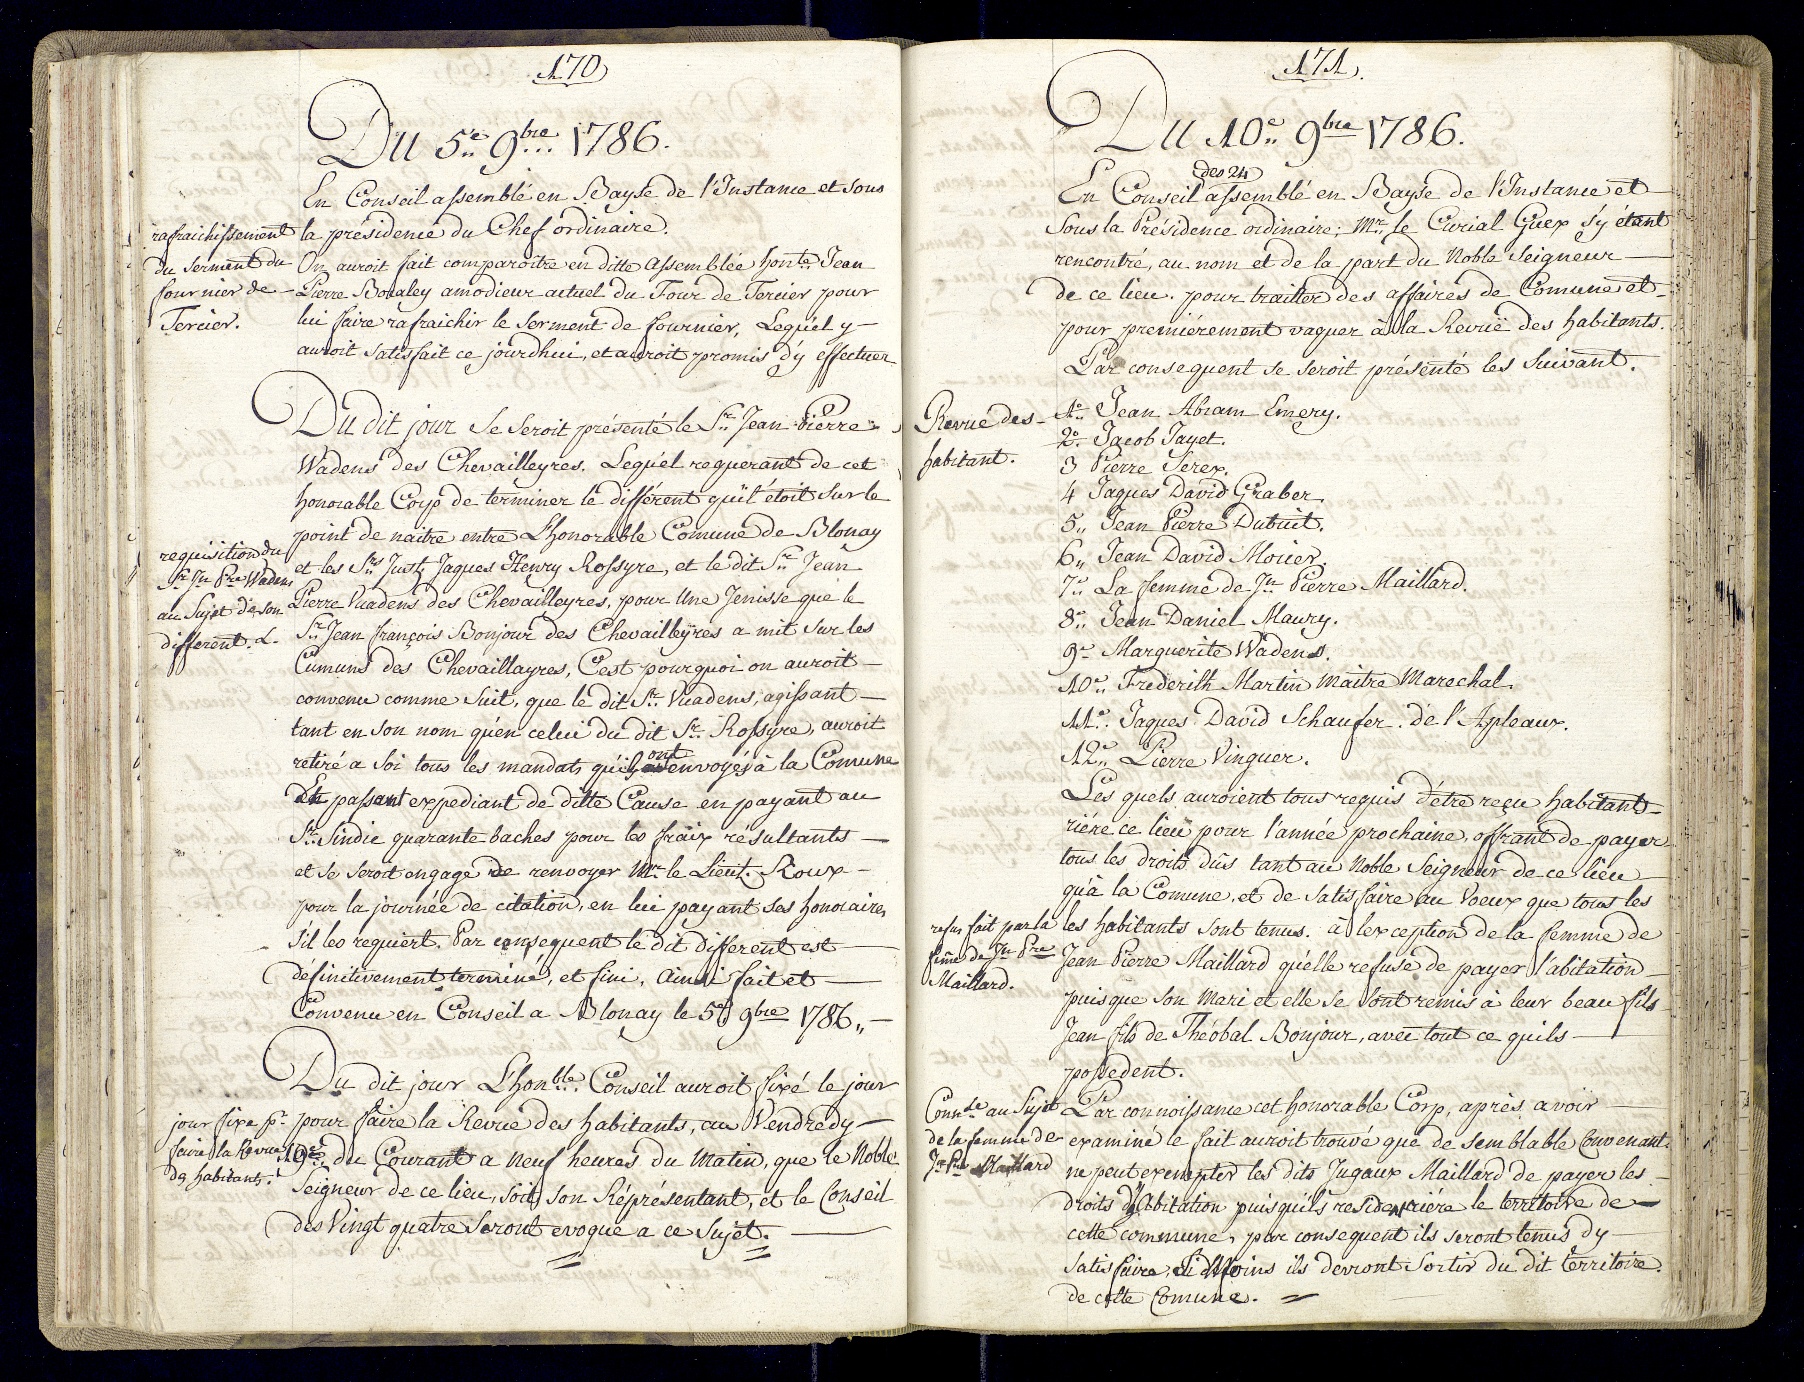 170
Du 5.e 9.bre 1786.
En Conseil assemblé en Bayse de l'Instance et sous
la présidence du Chef ordinaire.
rafraichissement
du serment du
fournier de
Tercier.
On auroit fait comparoitre en ditte Assemblée hon.te Jean
Pierre Boualey amodieur actuel du Four de Tercier pour
lui faire rafraichir le serment de fournier, Lequel y
auroit satisfait ce jourdhui, et auroit promis d'y effectuer
Du dit jour se seroit présenté le S.r Jean Pierre
Wadens des Chevailleyres. Lequel requerant de cet
honorable Corp de terminer le différent qu'il étoit sur le
point de naitre entre L'honorable Comune de Blonay
requisition du
S.r Jn P.re Wadens
au Sujet de son
different. L.
et les S.rs Just, Jaques Henry Rossyre, et le dit S.r Jean
Pierre Vuadens des Chevailleyres, pour Une Jenisse que le
S.r Jean françois Bonjour des Chevailleyres a mit sur les
Cumuns des Chevaillayres, C'est pourquoi on auroit
convenu comme suit, que le dit S.r Vuadens, agissant
tant en son nom qu'en celui du dit S.r Rossyre, auroit
retiré a soi tous les mandats qu'ils ont envoyés à la Comune
En passant expediant de ditte Cause en payant au
S.r Sindic quarante baches pour les fraix résultants
et se seroit engagé de renvoyer M.r le Lieut. Roux
pour la journée de citation, en lui payant ses honoraires
s'il les requiert. Par consequent le dit different est
définitivement terminé, et fini, Ainsi fait et
Convenu en Conseil a Blonay le 5.e 9.bre 1786.,,
Du dit jour L'hon.ble Conseil auroit fixé le jour
jour fixe p.r
faire la Revue
des habitants.
pour faire la Revue des habitants, au Vendredy
10.e du Courant a neuf heures du matin, que le Noble
Seigneur de ce lieu, soit son Réprésentant, et le Conseil
des Vingt quatre seront evoque a ce sujet.
171.
Du 10.e 9.bre 1786.
des 24
En Conseil assemblé en Bayse de l'Instance et
sous la Présidence ordinaire; M.r le Curial Guex s'y étant
rencontré, au nom et de la part du Noble Seigneur
de ce lieu. pour traitter des affaires de Comune et
pour premiérement vaquer à la Revuë des habitants.
Par consequent se seroit présenté les suivant.
Revue des
habitant.
1.e Jean Abram Emery.
2.e Jacob Jayet.
3 Pierre Serex.
4 Jaques David Graber
5,, Jean Pierre Dubuit.
6,, Jean David Morier.
7.e La femme de Jn Pierre Maillard.
8.e Jean Daniel Maury.
9.e Marguerite Wadens.
10.e Frederilh Martin maitre Marechal.
11.e Jaques David Schaufer de l'Apleaux.
12.e Pierre Vinguer.
Les quels auroient tous requis d'être reçu habitant
riére ce lieu pour l'année prochaine, offrant de payer
tous les droits dûs tant au Noble Seigneur de ce lieu
qu'à la Comune, et de satisfaire au Voeux que tous les
refus fait par la
feme de Jn P.re
Maillard.
les habitants sont tenus. à l'exception de la femme de
Jean Pierre Maillard qu'elle refuse de payer l'abitation
puisque son Mari et elle se sont remis à leur beau fils
Jean fils de Théobal Bonjour, avec tout ce quils
possedent.
Conn.ce au Sujet
de la femme de
Jn P.re Maillard
Par connoissance cet honorable Corp, après avoir
examiné le fait auroit trouvé que de semblable Convenant
ne peut exempter les dits Jugaux Maillard de payer les
droits d'abitation puisqu'ils resident riére le territoire de
cette commune, par consequent ils seront tenus d'y
satisfaire, Si moins ils devront sortir du dit territoire
de cette Comune.